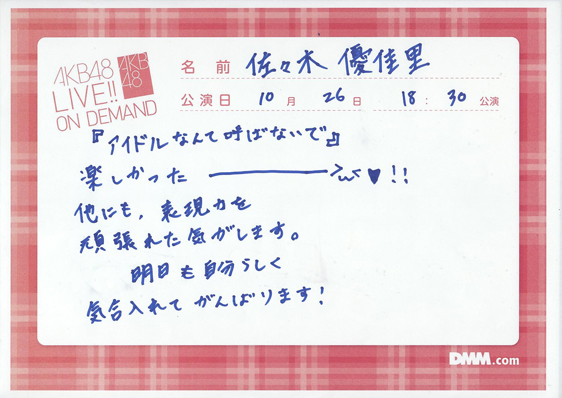 AKB48
LIVE!!
ON DEMAND
AKB
48
名前 佐々木 優佳里
公演日 10月 26日 18:30 公演
『アイドルなんて呼ばないで』
楽しかった ――――――>ω<♥!!
他にも、表現力を
頑張れた気がします。
明日も自分らしく
気合入れてがんばります!
DMM.com